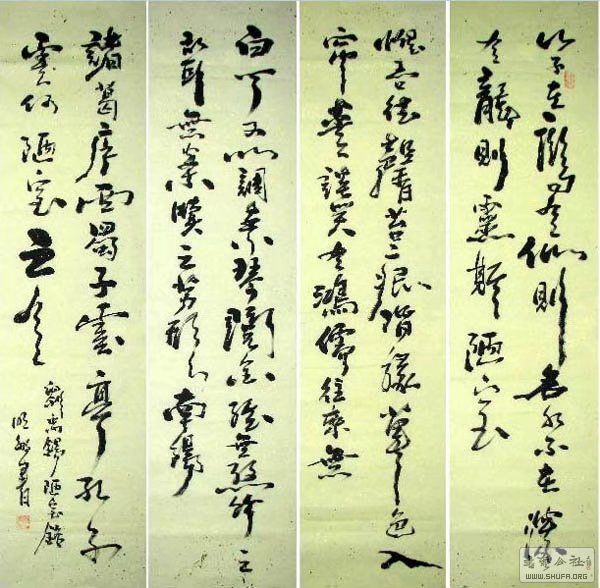 山不在高有仙則名水不在深
有龍則靈斯是陋室
惟吾德馨苔痕上階綠草色入
簾青談笑有鴻儒往來無
白丁可以調素琴閱金經無絲竹之
亂耳無案牘之勞形南陽
諸葛廬西蜀子雲亭孔子
雲何陋室之有
劉禹錫陋室銘
書
WWW.SHUFA.ORG